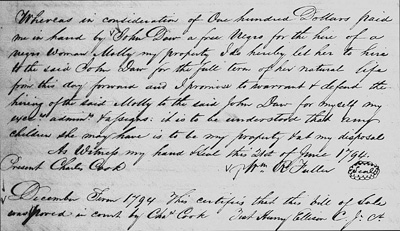 Whereas in consideration of One hundred Dollars paid
me in hand by John Daw a free Negro for the hire of a
negro Woman Molly my property I do hereby let her to hire
to the said John Daw for the full term of her natural life
from this day forward and I promise to warrant & defend the
hiring of the said Molly to the said John Daw for myself my
exec'rs admin'rs & assigns: it is to be understood that any
children she may have is to be my property & at my disposal
As Witness my hand & Seal this 21st of June 1794
Present Charles Cook Wm R Fuller Seal
December Term 1794 This certifies that this bill of Sale
was proved in court by Chas Cook Test Henry C. J. Ct